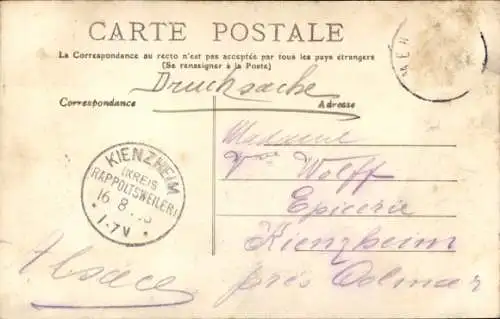 CARTE POSTALE
La Correspondance au recto n'est pas acceptée par tous les pays étrangers
(Se renseigner à la Poste)
Drucksache
Correspondance
Adresse
Madame
Vve Wolff
Epicerie
Kienzheim
près Colmar
Alsace
KIENZHEIM
(KREIS
RAPPOLTSWEILER)
16 8
1-7V